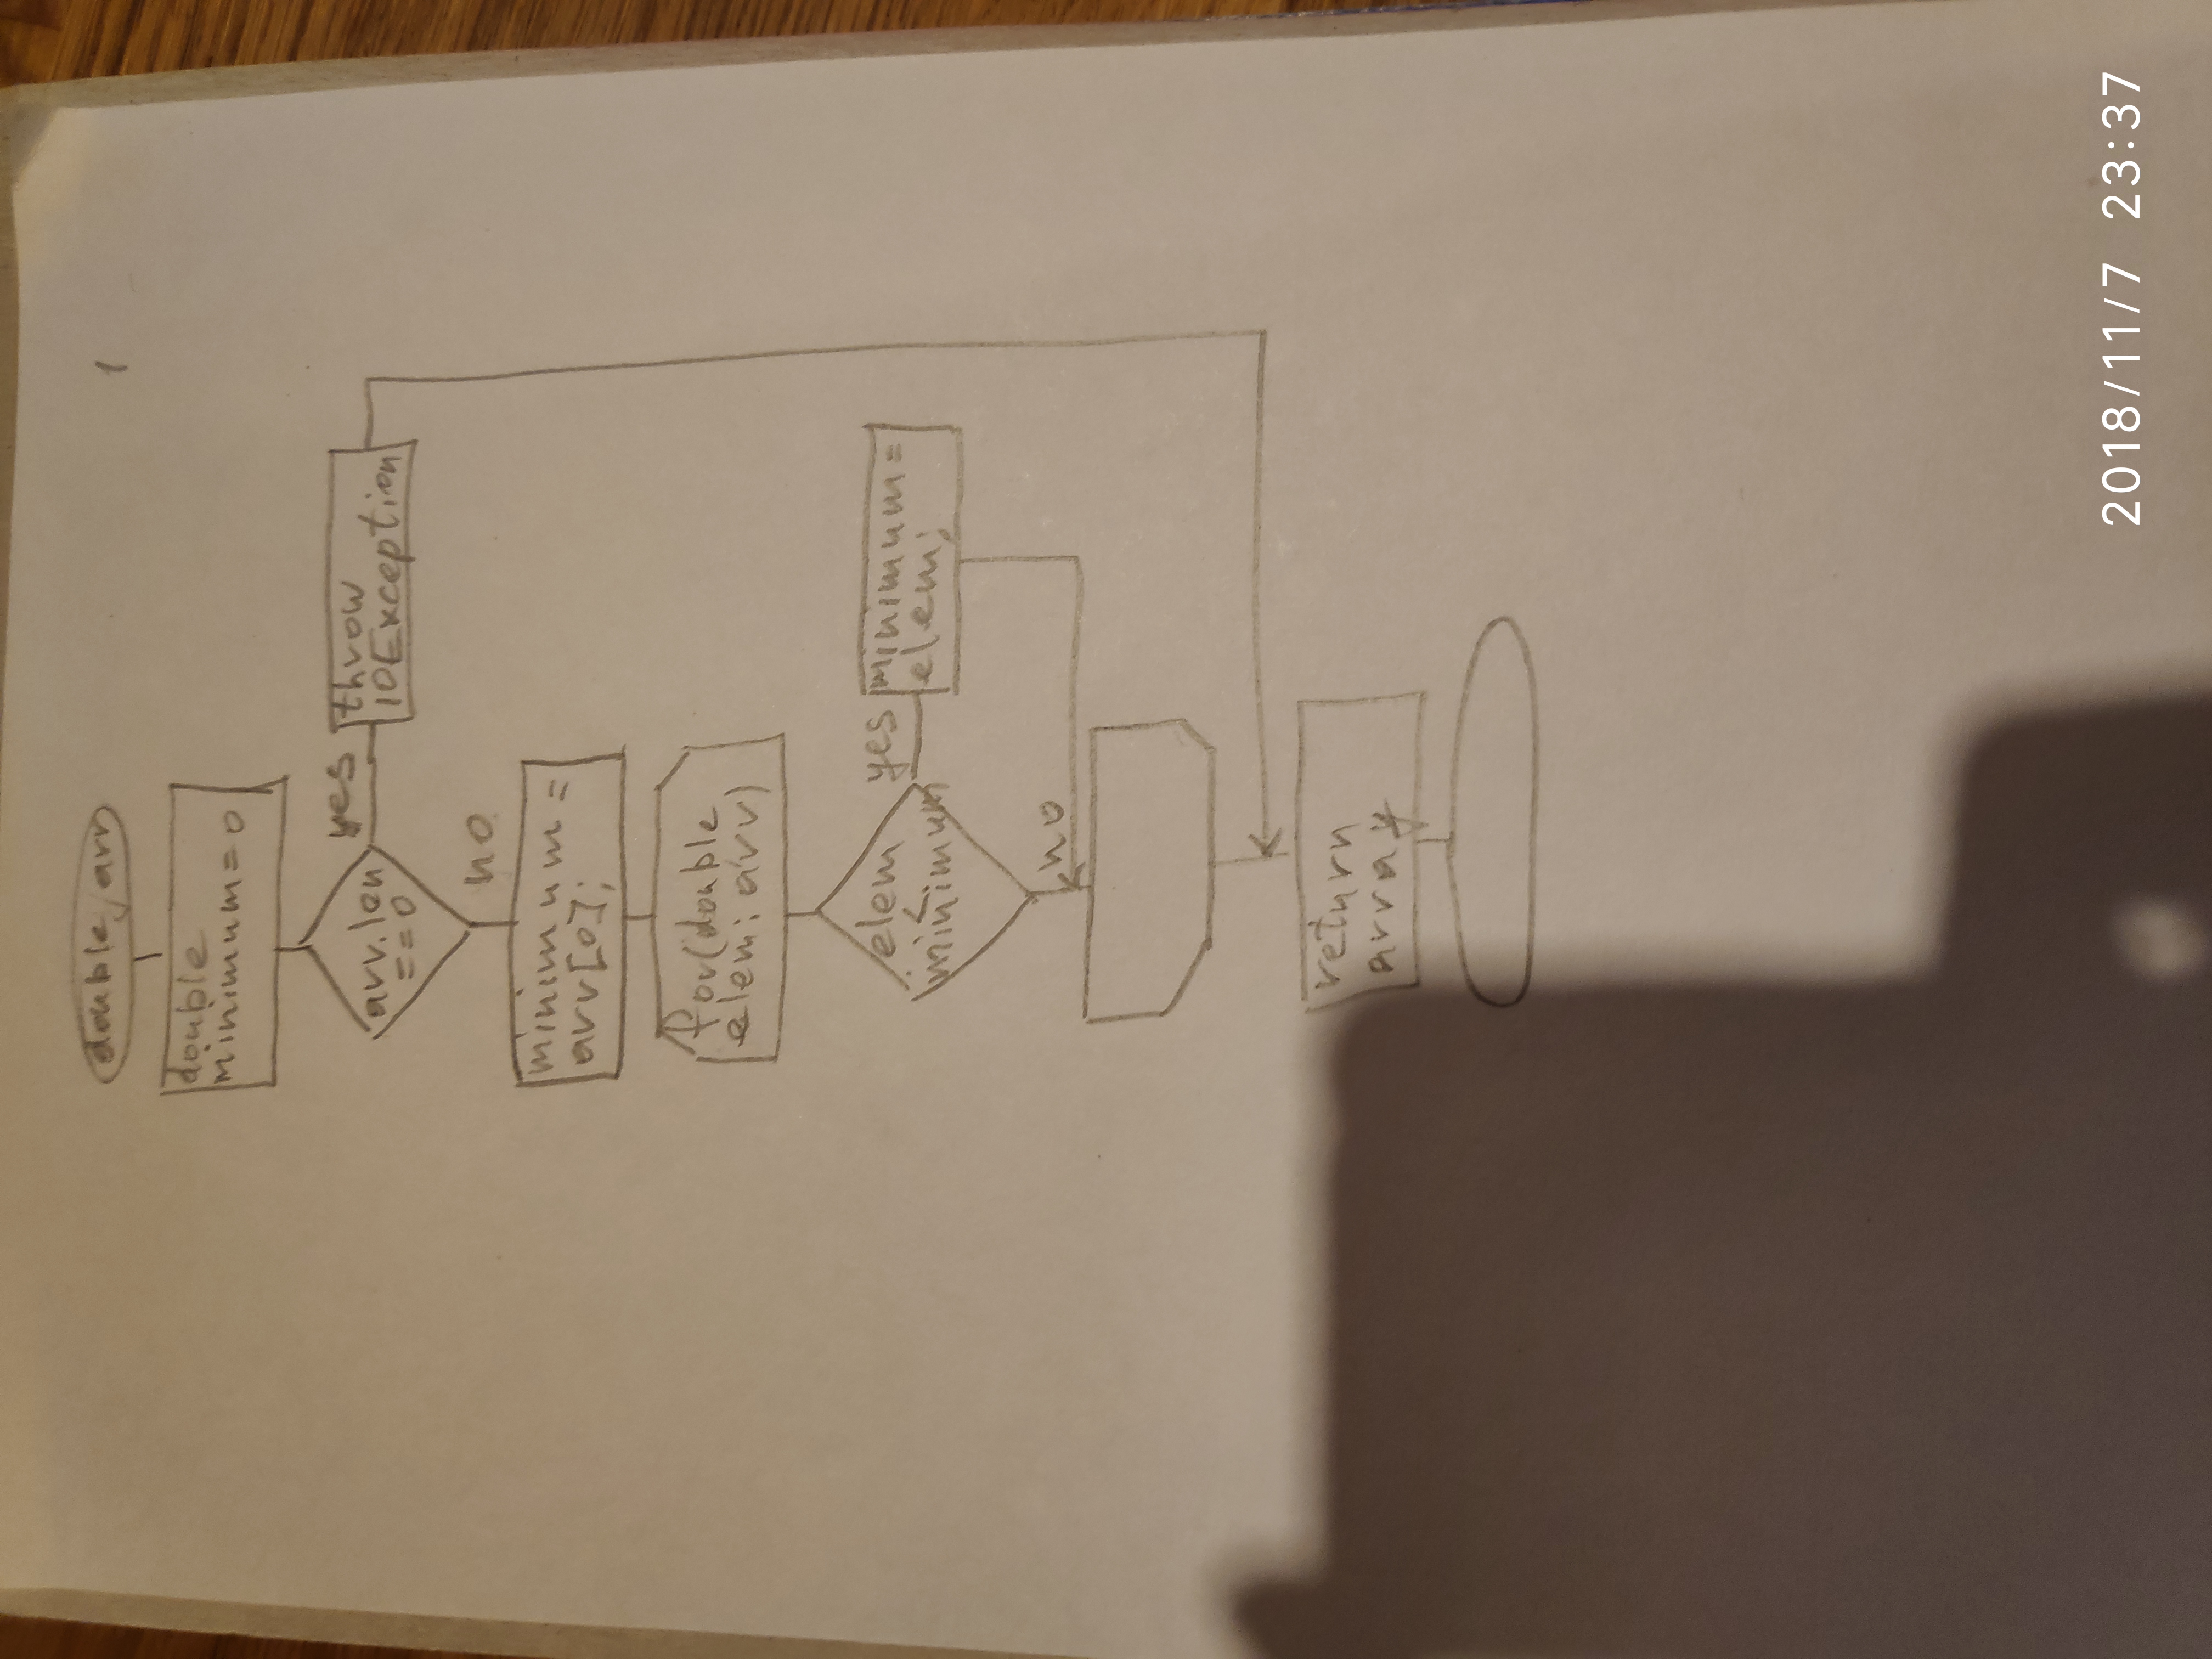 double, arr
1
double
minimum = 0
arr.len
== 0
yes
throw
IOException
no
minimum =
arr[0];
for(double
elem: arr)
elem
<
minimum
yes
minimum =
elem;
no
return
array
2018/11/7 23:37